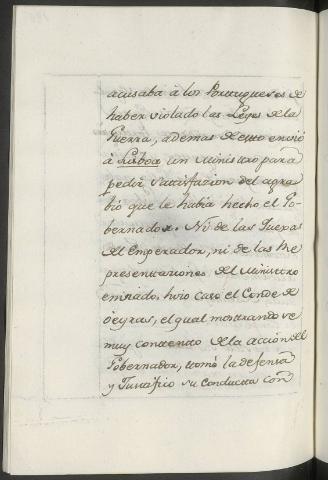 acusaba à los Portugueses de
haber violado las Leyes de la
Guerra, ademas de esto envió
à Lisboa un Ministro para
pedir satisfazion del agra-
bio que le habia hecho el Go-
bernador. Ni de las Quexas
del Emperador, ni de las Re
presentaciones del Ministro
embiado, hizo caso el Conde de
Oeyras, el qual mostrandose
muy contento de la acción del
Gobernador, tomó la defensa
y Justificó su conducta con